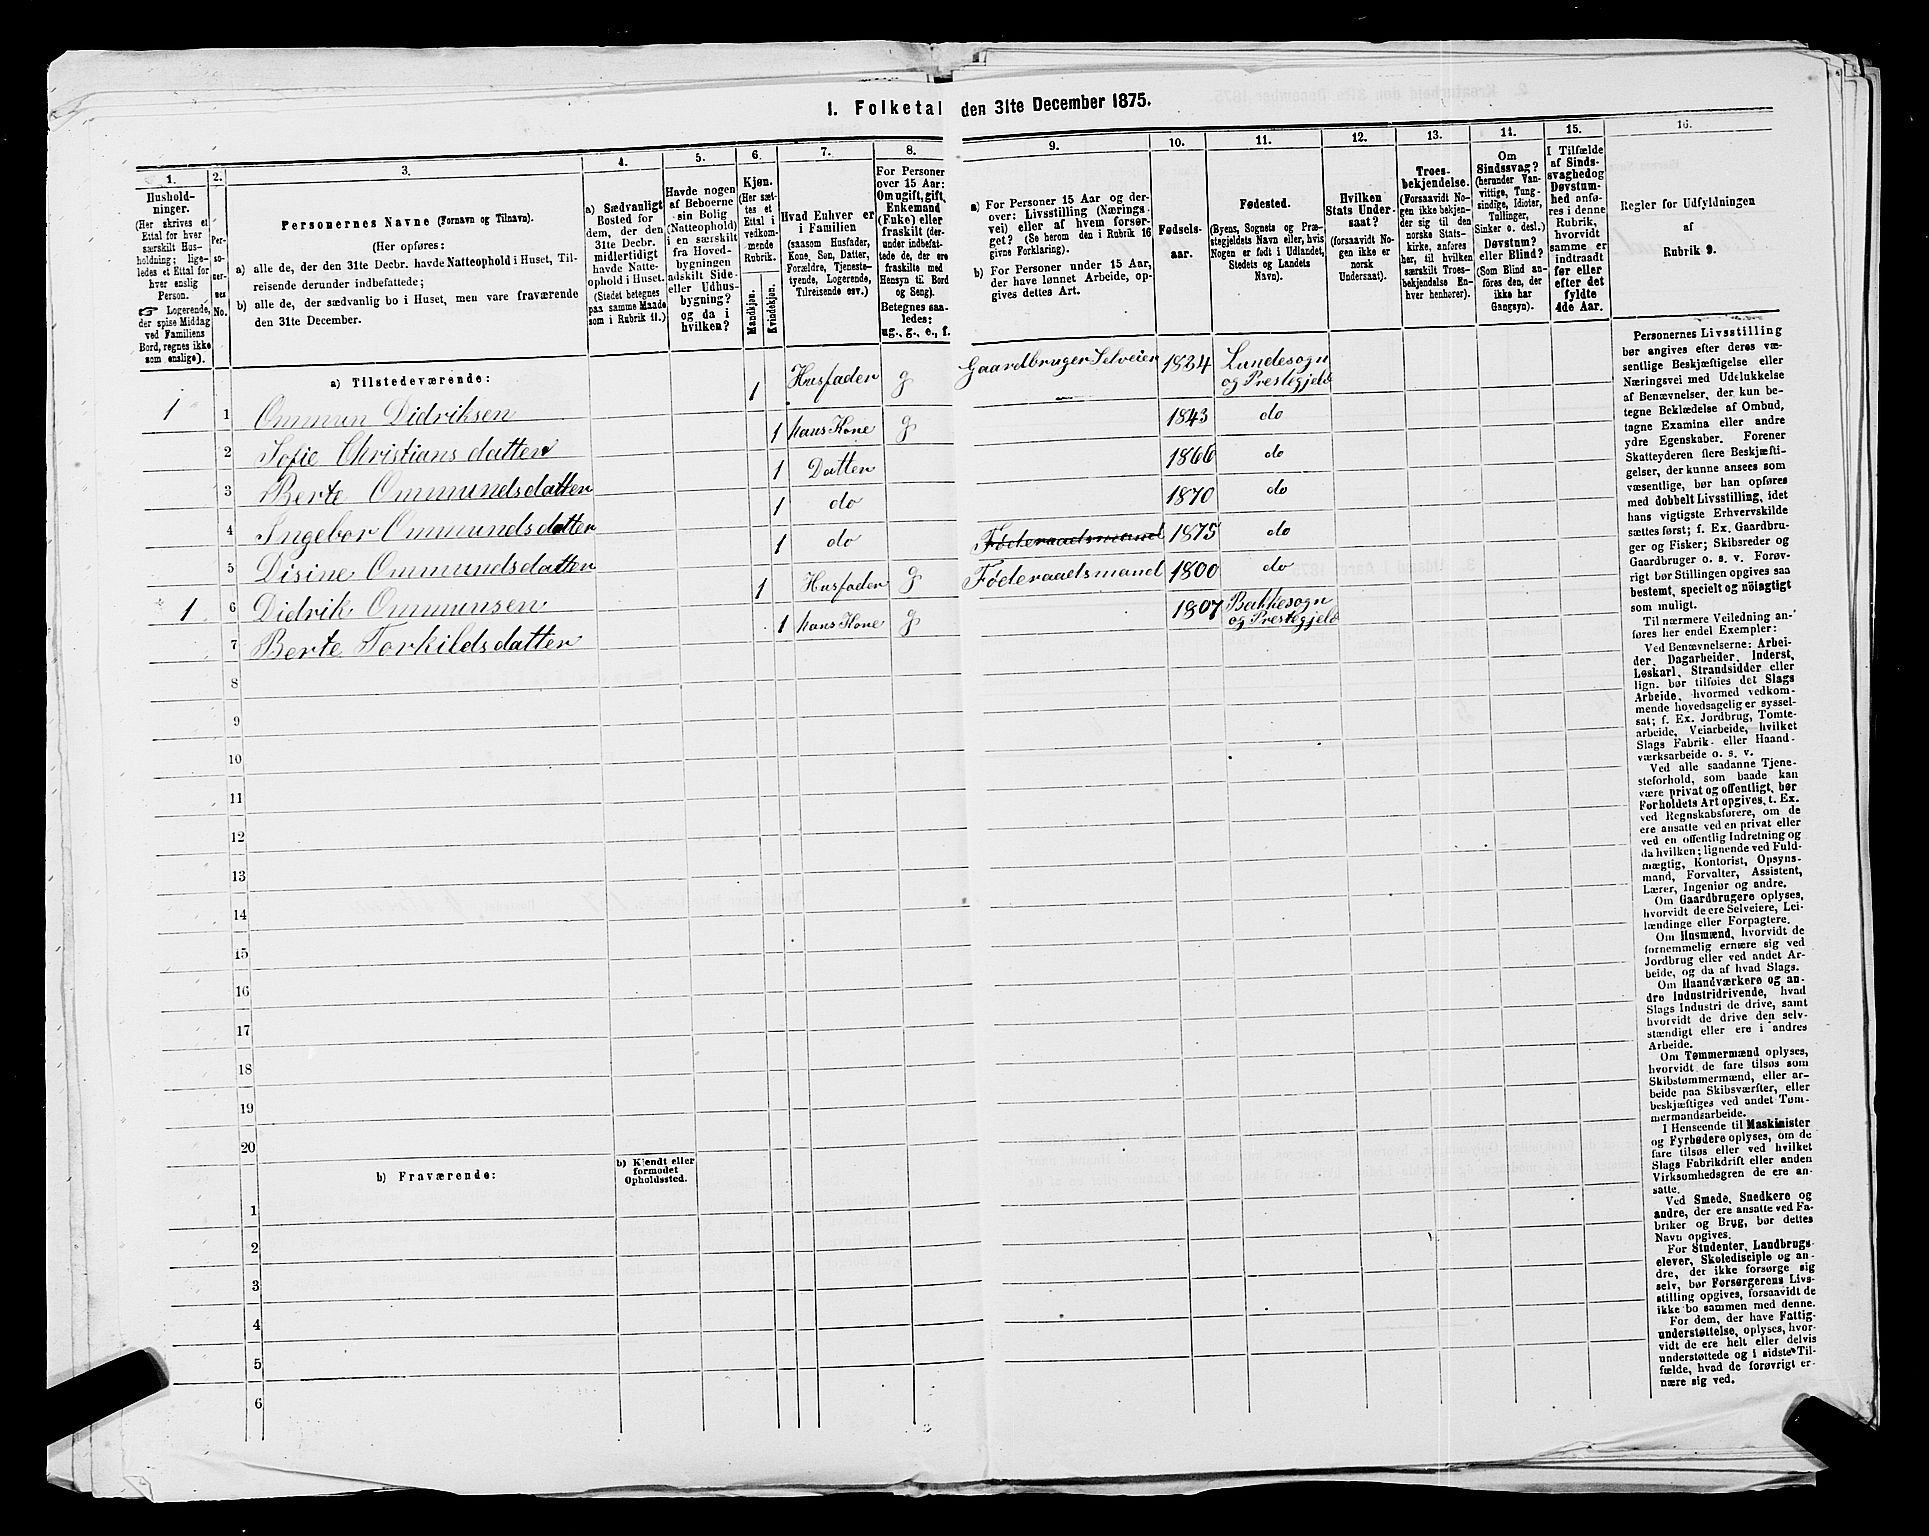 1. Folketal den 31te December 1875.
1.
Hushold-
ninger.
(Her skrives et
Ettal for hver
særskilt Hus-
holdning; lige-
ledes et Ettal for
hver enslig
Person.
☞ Logerende,
der spise Middag
ved Familiens
Bord, regnes ikke
som enslige).
2.
Per-
so-
ner-
nes
No.
3.
Personernes Navne (Fornavn og Tilnavn).
(Her opføres:
a) alle de, der den 31te Decbr. havde Natteophold i Huset, Til-
reisende derunder indbefattede;
b) alle de, der sædvanlig bo i Huset, men vare fraværende
den 31te December.
4.
a) Sædvanligt
Bosted for
dem, der den
31te Decbr.
midlertidigt
havde Natte-
ophold i Huset.
(Stedet betegnes
paa samme Maade
som i Rubrik 11.)
5.
Havde nogen
af Beboerne
sin Bolig
(Natteophold)
i en særskilt
fra Hoved-
bygningen
adskilt Side-
eller Udhus-
bygning?
og da i
hvilken?
6.
Kjøn.
(Her sæt-
tes et
Ettal i
vedkom-
mende
Rubrik.
Mandkjøn.
Kvindekjøn.
7.
Hvad Enhver er
i Familien
(saasom Husfader,
Kone, Søn, Datter,
Forældre, Tjeneste-
tyende, Logerende,
Tilreisende osv.)
8.
For Personer
over 15 Aar:
Om ugift, gift,
Enkemand
(Enke) eller
fraskilt (der-
under indbefat-
tede de, der ere
fraskilte med
Hensyn til Bord
og Seng).
Betegnes saa-
ledes:
ug., g., e., f.
9.
a) For Personer 15 Aar og der-
over: Livsstilling (Nærings-
vei) eller af hvem forsør-
get? (Se herom den i Rubrik 16
givne Forklaring).
b) For Personer under 15 Aar,
der have lønnet Arbeide, op-
gives dettes Art.
10.
Fødsels-
aar.
11.
Fødested.
(Byens, Sognets og Præ-
stegjeldets Navn eller, hvis
Nogen er født i Udlandet,
Stedets og Landets
Navn).
12.
Hvilken
Stats Under-
saat?
(forsaavidt No-
gen ikke er
norsk
Undersaat).
13.
Troes-
bekjendelse.
(Forsaavidt No-
gen ikke bekjen-
der sig til den
norske Stats-
kirke, anføres
her, til hvilken
særskilt Troes-
bekjendelse En-
hver henhører).
14.
Om
Sindssvag?
(herunder Van-
vittige, Tung-
sindige, Idioter,
Tullinger,
Sinker o. desl.)
Døvstum?
eller Blind?
(Som Blind an-
føres den, der
ikke har
Gangsyn).
15.
I Tilfælde
af Sinds-
svaghed og
Døvstum-
hed anfø-
res i denne
Rubrik,
hvorvidt
samme er
indtraadt
før eller
efter det
fyldte
4de Aar.
16.
Regler for Udfyldningen
af
Rubrik 9.
a) Tilstedeværende:
1 1 Ommun Didriksen 1 Husfader g Gaardbruger Selveier 1834 Lundesogn
og Prestegjeld
2 Sofie Christiansdatter 1 hans Kone g 1843 do
3 Berte Ommundsdatter 1 Datter 1866 do
4 Ingebor Ommundsdatter 1 do 1870 do
5 Disine Ommundsdatter 1 do Føderaadsmand 1875 do
1 6 Didrik Ommunsen 1 Husfader g Føderaadsmand 1800 do
7 Berte Torkildsdatter 1 hans Kone g 1807 Bakkesogn
og Prestegjeld
8
9
10
11
12
13
14
15
16
17
18
19
20
b) Fraværende:
b) Kjendt eller
formodet
Opholdssted.
1
2
3
4
5
6
Personernes Livsstilling
bør angives efter deres væ-
sentlige Beskjæftigelse eller
Næringsvei med Udelukkelse
af Benævnelser, der kun be-
tegne Beklædelse af Ombud,
tagne Examina eller andre
ydre Egenskaber. Forener
Skatteyderen flere Beskjæfti-
gelser, der kunne ansees som
væsentlige, bør han opføres
med dobbelt Livsstilling, idet
hans vigtigste Erhvervskilde
sættes først; f. Ex. Gaardbru-
ger og Fisker; Skibsreder og
Gaardbruger o. s. v. Forøv-
rigt bør Stillingen opgives saa
bestemt, specielt og nøiagtigt
som muligt.
Til nærmere Veiledning an-
føres her endel Exempler:
Ved Benævnelserne: Arbei-
der, Dagarbeider, Inderst,
Løskarl, Strandsidder eller
lign. bør tilføies det Slags
Arbeide, hvormed vedkom-
mende hovedsagelig er syssel-
sat; f. Ex. Jordbrug, Tomte-
arbeide, Veiarbeide, hvilket
Slags Fabrik- eller Haand-
værksarbeide o. s. v.
Ved alle saadanne Tjene-
steforhold, som baade kan
være privat og offentligt, bør
Forholdets Art opgives, t. Ex.
ved Regnskabsførere, om de
ere ansatte ved en privat eller
ved en offentlig Indretning og
da hvilken; lignende ved Fuld-
mægtig, Kontorist, Opsyns-
mand, Forvalter, Assistent,
Lærer, Ingeniør og andre.
Om Gaardbrugere oplyses,
hvorvidt de ere Selveiere, Lei-
lændinge eller Forpagtere.
Om Husmænd, hvorvidt de
fornemmelig ernære sig ved
Jordbrug eller ved andet Ar-
beide, og da af hvad Slags.
Om Haandværkere og an-
dre Industridrivende, hvad
Slags Industri de drive, samt
hvorvidt de drive den selv-
stændigt eller ere i andres
Arbeide.
Om Tømmermænd oplyses,
hvorvidt de fare tilsøs som
Skibstømmermænd, eller ar-
beide paa Skibsværfter, eller
beskjæftiges ved andet Tøm-
mermandsarbeide.
I Henseende til Maskinister
og Fyrbødere oplyses, om de
fare tilsøs eller ved hvilket
Slags Fabrikdrift eller anden
Virksomhedsgren de ere an-
satte.
Ved Smede, Snedkere og
andre, der ere ansatte ved Fa-
briker og Brug, bør dettes
Navn opgives.
For Studenter, Landbrugs-
elever, Skoledisciple og an-
dre, der ikke forsørge sig
selv, bør Forsørgerens Livs-
stilling opgives, forsaavidt de
ikke bo sammen med denne.
For dem, der have Fattig-
understøttelse, oplyses, hvor-
vidt de ere helt eller delvis
understøttede og i sidste Til-
fælde, hvad de forøvrigt er-
nære sig ved.